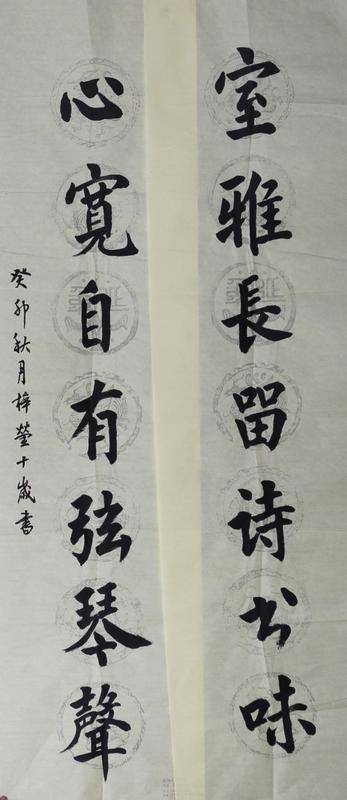 室雅長留诗书味
心寬自有弦琴聲
癸卯秋月梓莹十歲書